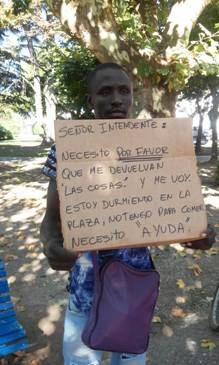 SEÑOR INTENDENTE:
NECESITO POR FAVOR
QUE ME DEVUELVAN
"LAS COSAS." Y ME VOY.
ESTOY DURMIENDO EN LA
PLAZA, NO TENGO PARA COMER
NECESITO "AYUDA".